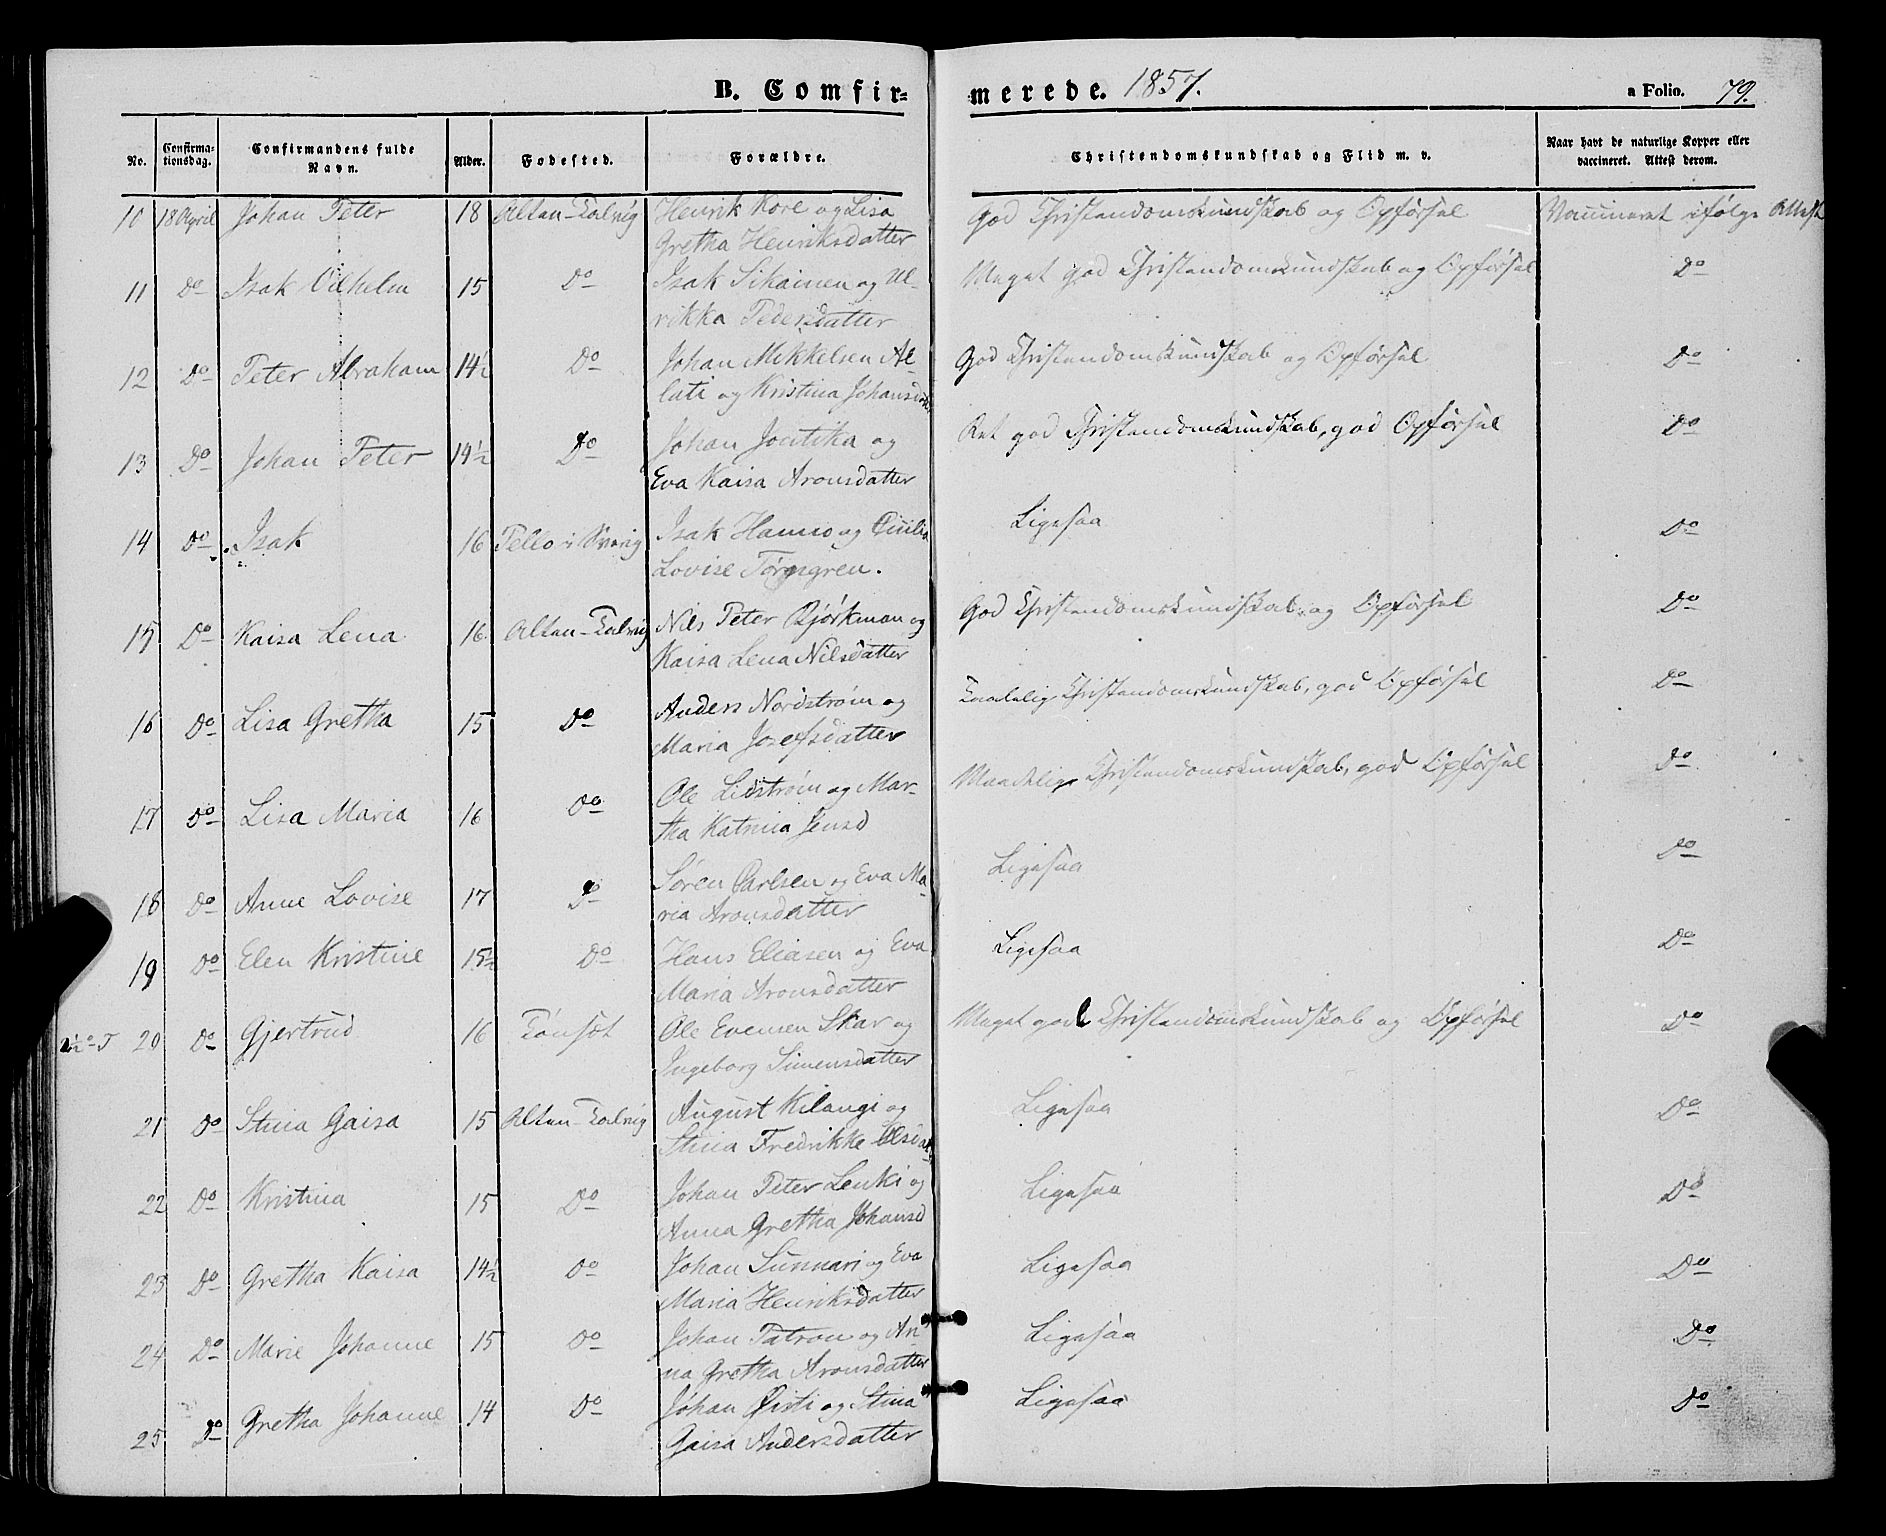 B. Comfir= merede. 1857. a Folio. 79.
No. Confirma-tionsdag. Confirmandens fulde Navn. Alder. Fødested. Forældre. Christendomskundskab og Flid m. v. Naar havt de naturlige Kopper eller vaccineret. Attest derom.
10 18 April Johan Peter 18 Alten-Talvig Henrik Kore og Lisa God Christendomskundskab og Opførsel Vaccineret ifølge Attest
Gretha Henriksdatter
11 Do Isak Vilhelm 15 Do Isak Sikainen og Ul- Meget god Christendomskundskab og Opførsel Do
rikka Pedersdatter
12 Do Peter Abraham 14½ Do Johan Mikkelsen Al- God Christendomskundskab og Opførsel Do
lati og Kristina Johansd
13 Do Johan Peter 14½ Do Johan og Ret god Christendomskundskab, god Opførsel Do
Eva Kaisa Aronsdatter
14 Do Isak 16 Pello i Sverig Isak og Cicilia Ligesaa Do
Lovise
15 Do Kaisa Lena 16 Alten-Talvig Nils Peter Bjørkman og God Christendomskundskab og Opførsel Do
Kaisa Lena Nilsdatter
16 Do Lisa Gretha 15 Do Anders Nordstrøm og Taalelig Christendomskundskab, god Opførsel Do
Maria Josefsdatter
17 Do Lisa Maria 16 Do Ole Lidstrøm og Mar- Maadelig Christendomskundskab, god Opførsel Do
tha Katrina Jensd
18 Do Anne Lovise 17 Do Søren Carlsen og Eva Ma- Ligesaa Do
ria Aronsdatter
19 Do Elen Kristine 15½ Do Hans Eliasen og Eva Ligesaa Do
Maria Aronsdatter
20 Do Gjertrud 16 Tønset Ole Evensen Skar og Meget god Christendomskundskab og Opførsel Do
Ingeborg Simensdatter
21 Do Stina Gaisa 15 Alten-Talvig August Kilangi og Ligesaa Do
Stina Fredrikke
22 Do Kristina 15 Do Johan Peter Lenki og Ligesaa Do
Anna Gretha Johansd
23 Do Gretha Kaisa 14½ Do Johan Sunnari og Eva Ligesaa Do
Maria Henriksdatter
24 Do Marie Johanne 15 Do Johan Patron og An- Ligesaa Do
na Gretha Aronsdatter
25 Do Gretha Johanne 14 Do Johan Øisti og Stina Ligesaa Do
Gaisa Andersdatter